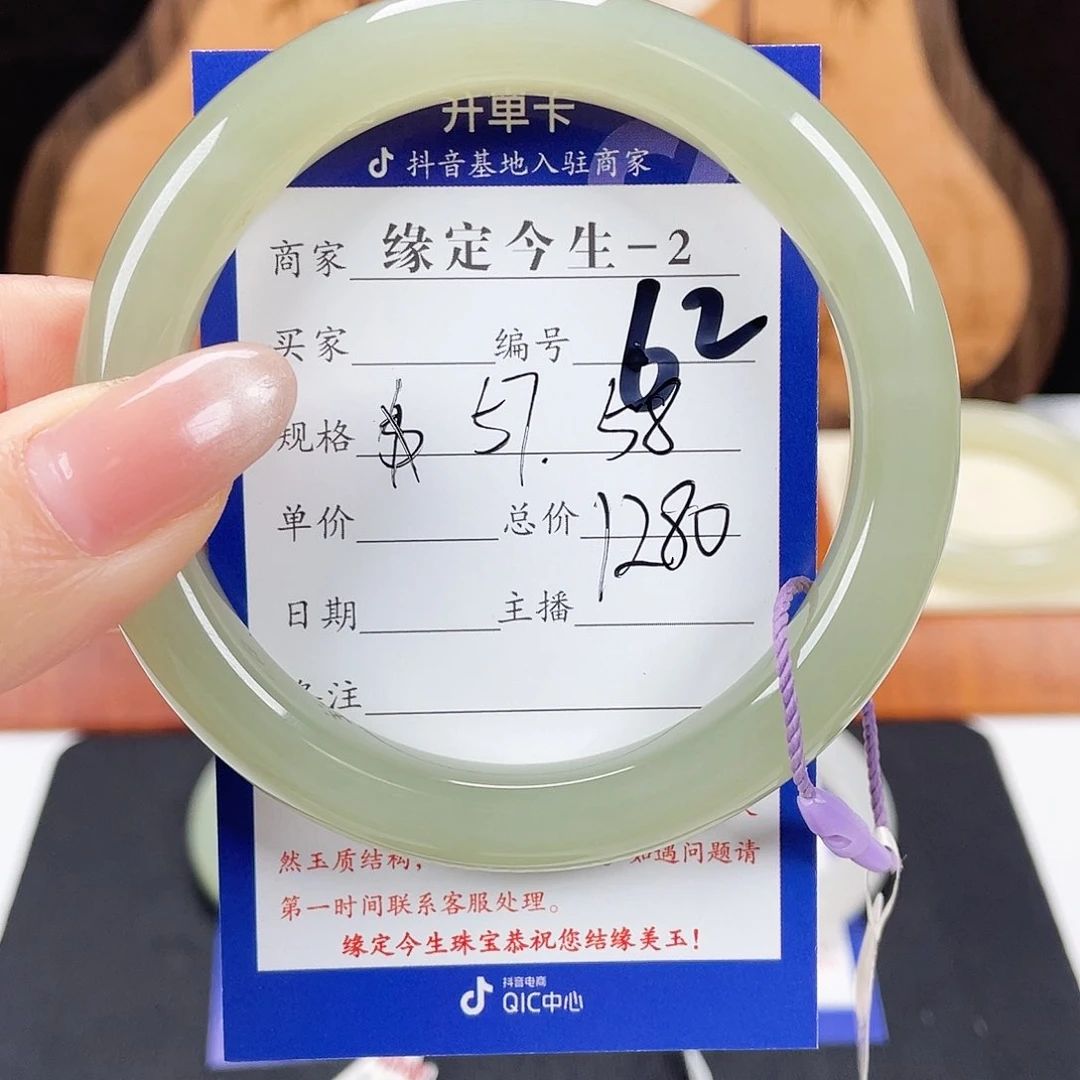 开單卡
抖音基地入驻商家
商家 缘定今生-2
买家 编号 62
规格 57. 58
单价 总价 1280
日期 主播
注
然玉质结构, 如遇问题请
第一时间联系客服处理。
缘定今生珠宝恭祝您结缘美玉!
抖音电商
QIC中心